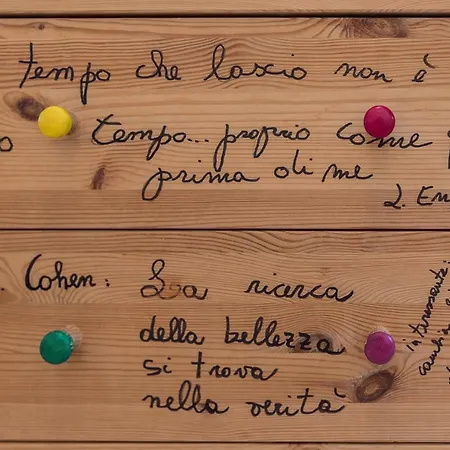 tempo che lascio non è
o tempo... proprio come
prima di me
2. En
. Cohen: La ricerca
della bellezza
si trova
nella verità
interessante: